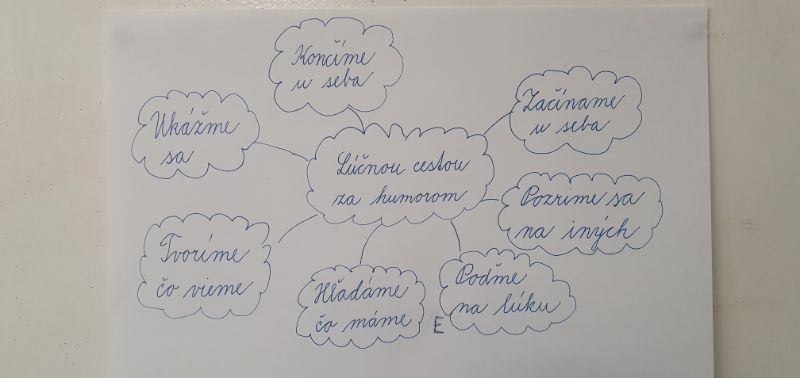 Končíme
u seba
Začíname
u seba
Ukážme
sa
Lúčnou cestou
za humorom
Pozrime sa
na iných
Tvoríme
čo vieme
Hľadáme
čo máme
Poďme
na lúku
E